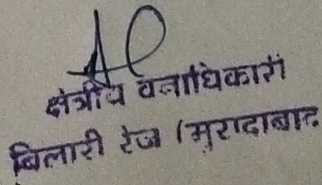 क्षेत्रीय वनाधिकारी
बिलारी रेंज (मुरादाबाद